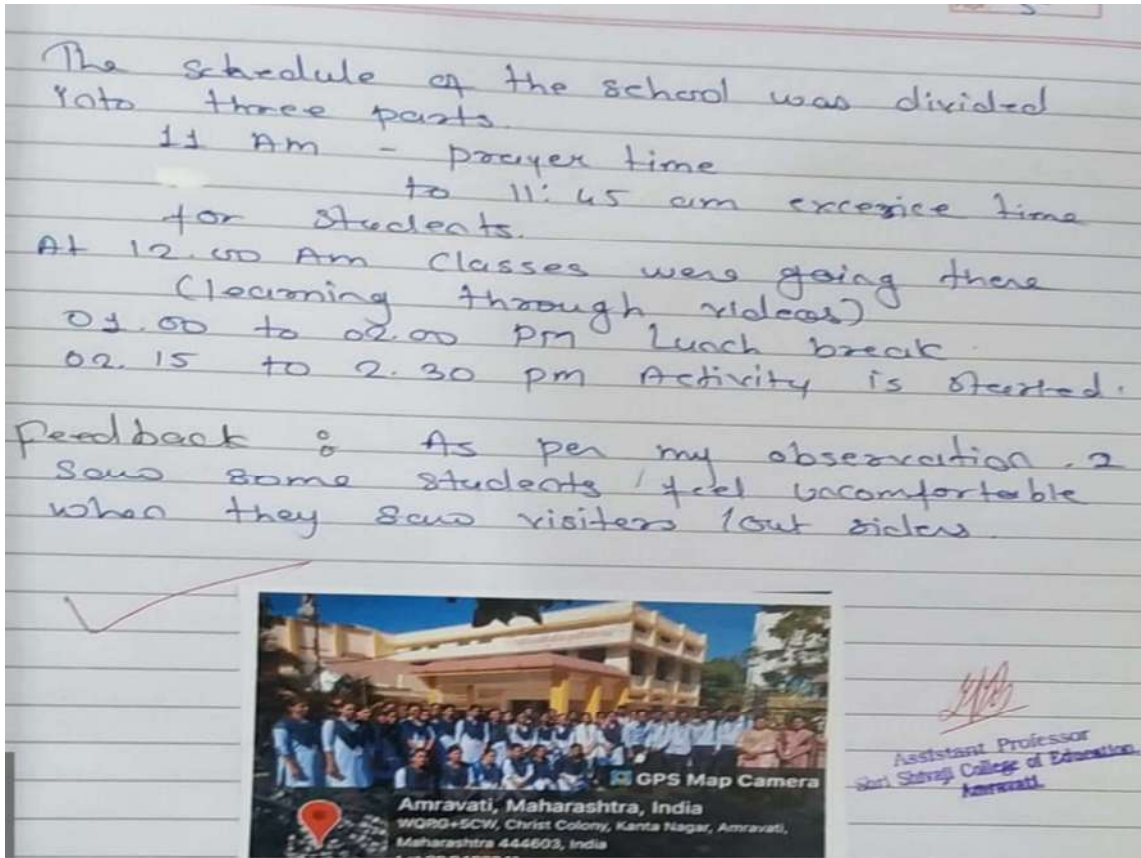 The schedule of the school was divided
into three parts.
11 Am - prayer time
to 11:45 am excerice time
for students.
At 12.00 Am Classes were going there
(learning through videos)
01.00 to 02.00 pm Lunch break.
02.15 to 2.30 pm Activity is started.
Feedback : As per my observation. I
saw some students feel uncomfortable
when they saw visiters / out siders.
GPS Map Camera
Amravati, Maharashtra, India
WQRG+5CW, Christ Colony, Kanta Nagar, Amravati,
Maharashtra 444603, India
Assistant Professor
Shri Shivaji College of Education
Amravati.